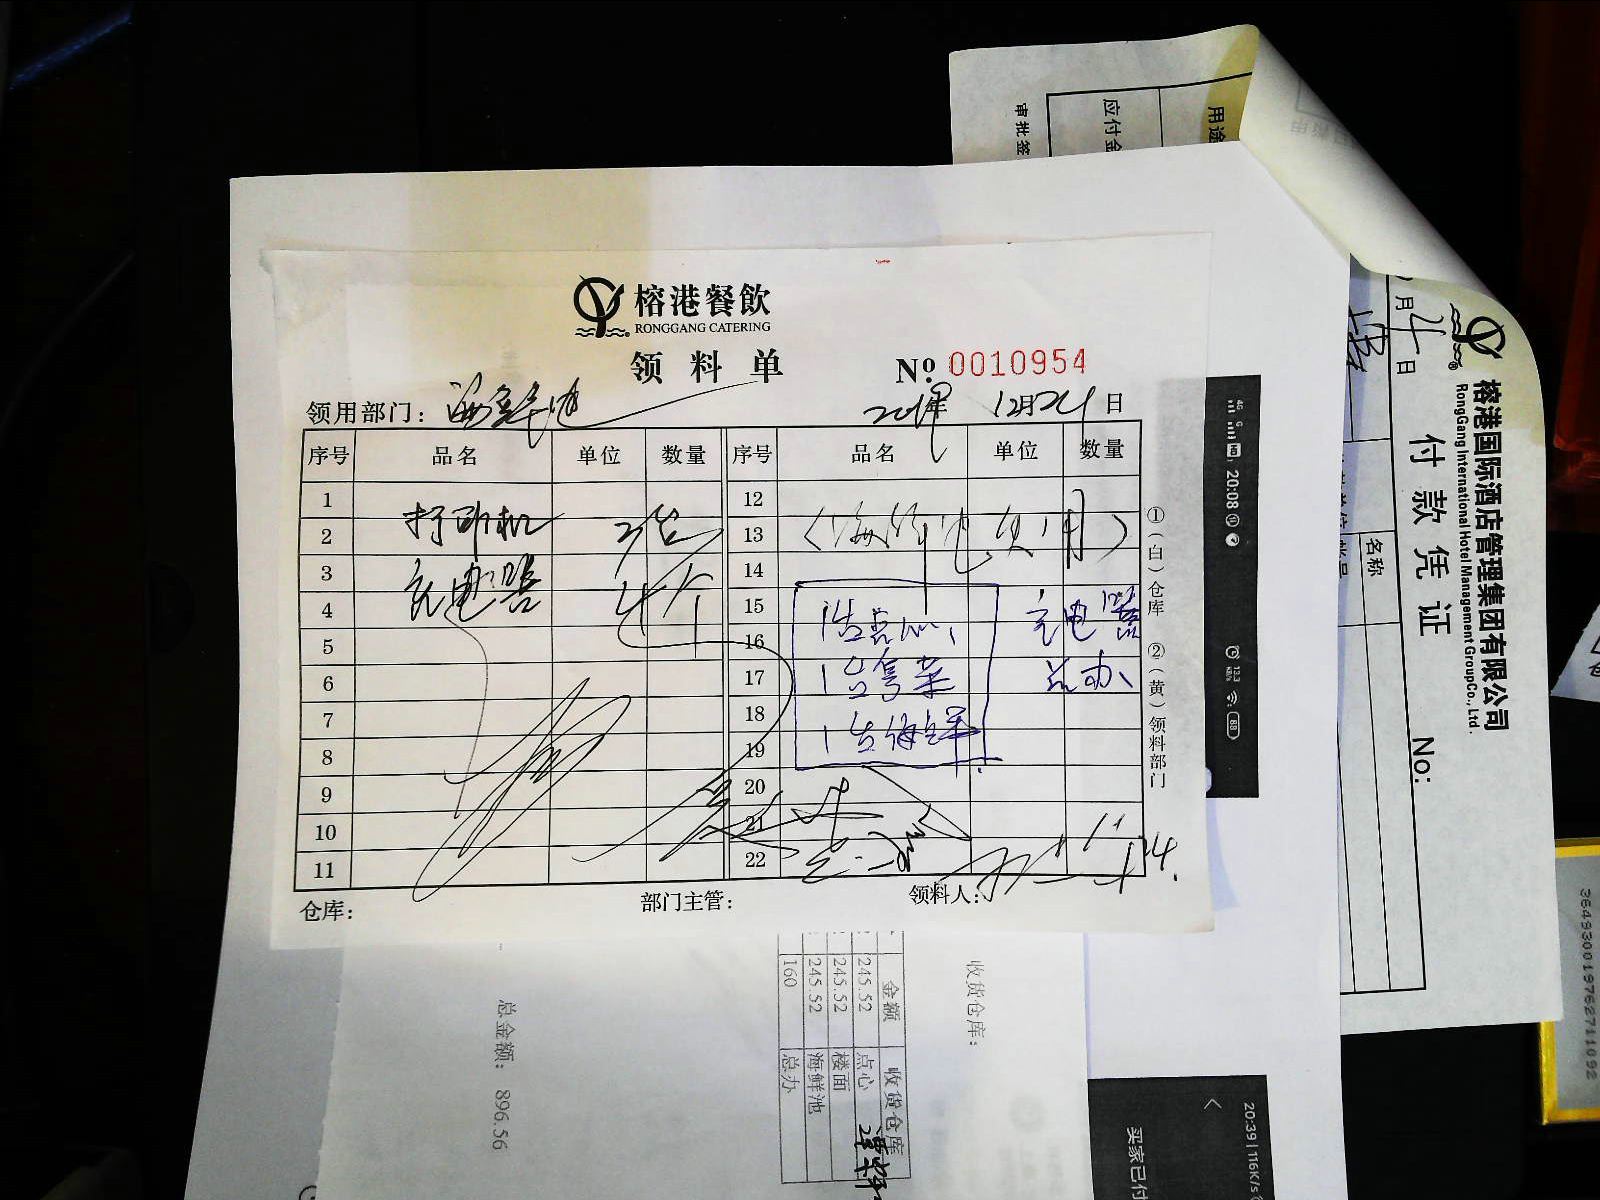 榕港餐飲
RONGGANG CATERING
领料单
№ 0010954
领用部门：海鲜池
年 12月24日
序号 品名 单位 数量 序号 品名 单位 数量
1 12
2 打印机 3台 13 （海鲜池使用）
3 14
4 充电器 4个 15
5 16
6 17
7 18
8 19
9 20
10 21
11 22
1台点心 充电器
1台粤菜 总办
1台海鲜
仓库： 部门主管： 领料人：
①（白）仓库 ②（黄）领料部门
审批签
应付金
用途
月 日
榕港国际酒店管理集团有限公司
RongGang International Hotel Management Group Co., Ltd.
付款凭证
No:
名称
20:08
收货仓库：
金额 收货仓库
245.52 点心
245.52 楼面
245.52 海鲜池
160 总办
总金额： 896.56
20:39 | 116K/s
买家已付
364930019762711092